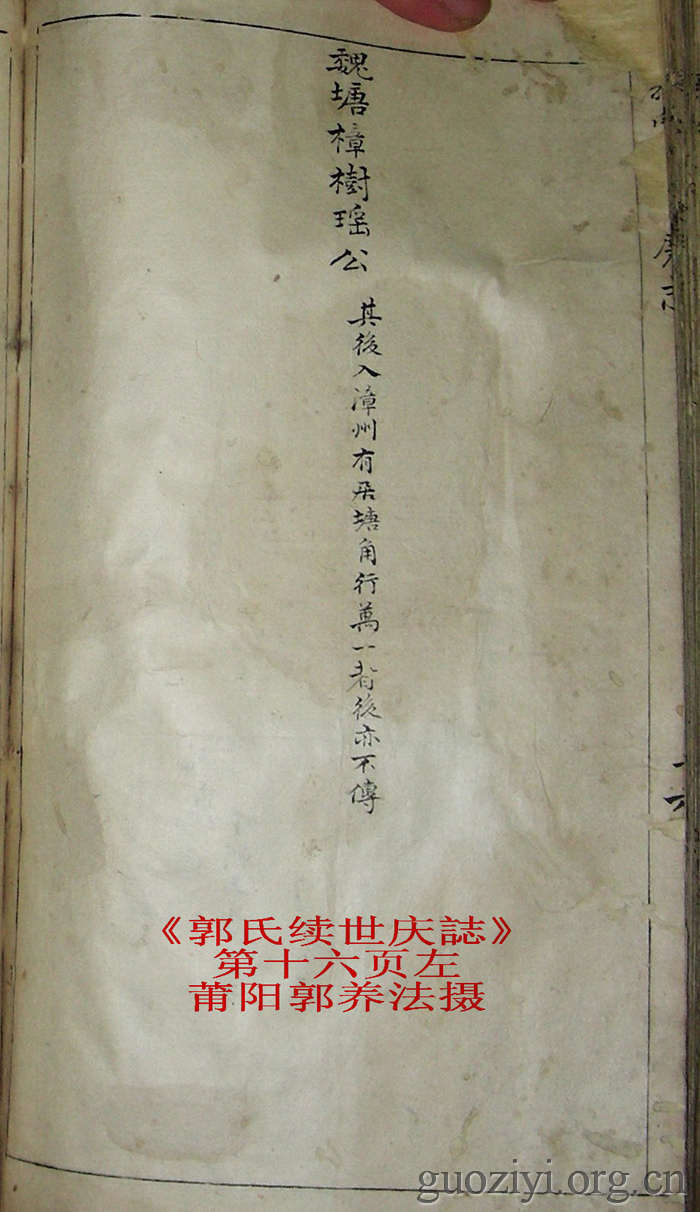 魏塘樟樹瑶公
其後入漳州有居塘角行萬一者後亦不傳
十六
《郭氏续世庆誌》
第十六页左
莆阳郭养法摄
guoziyi.org.cn